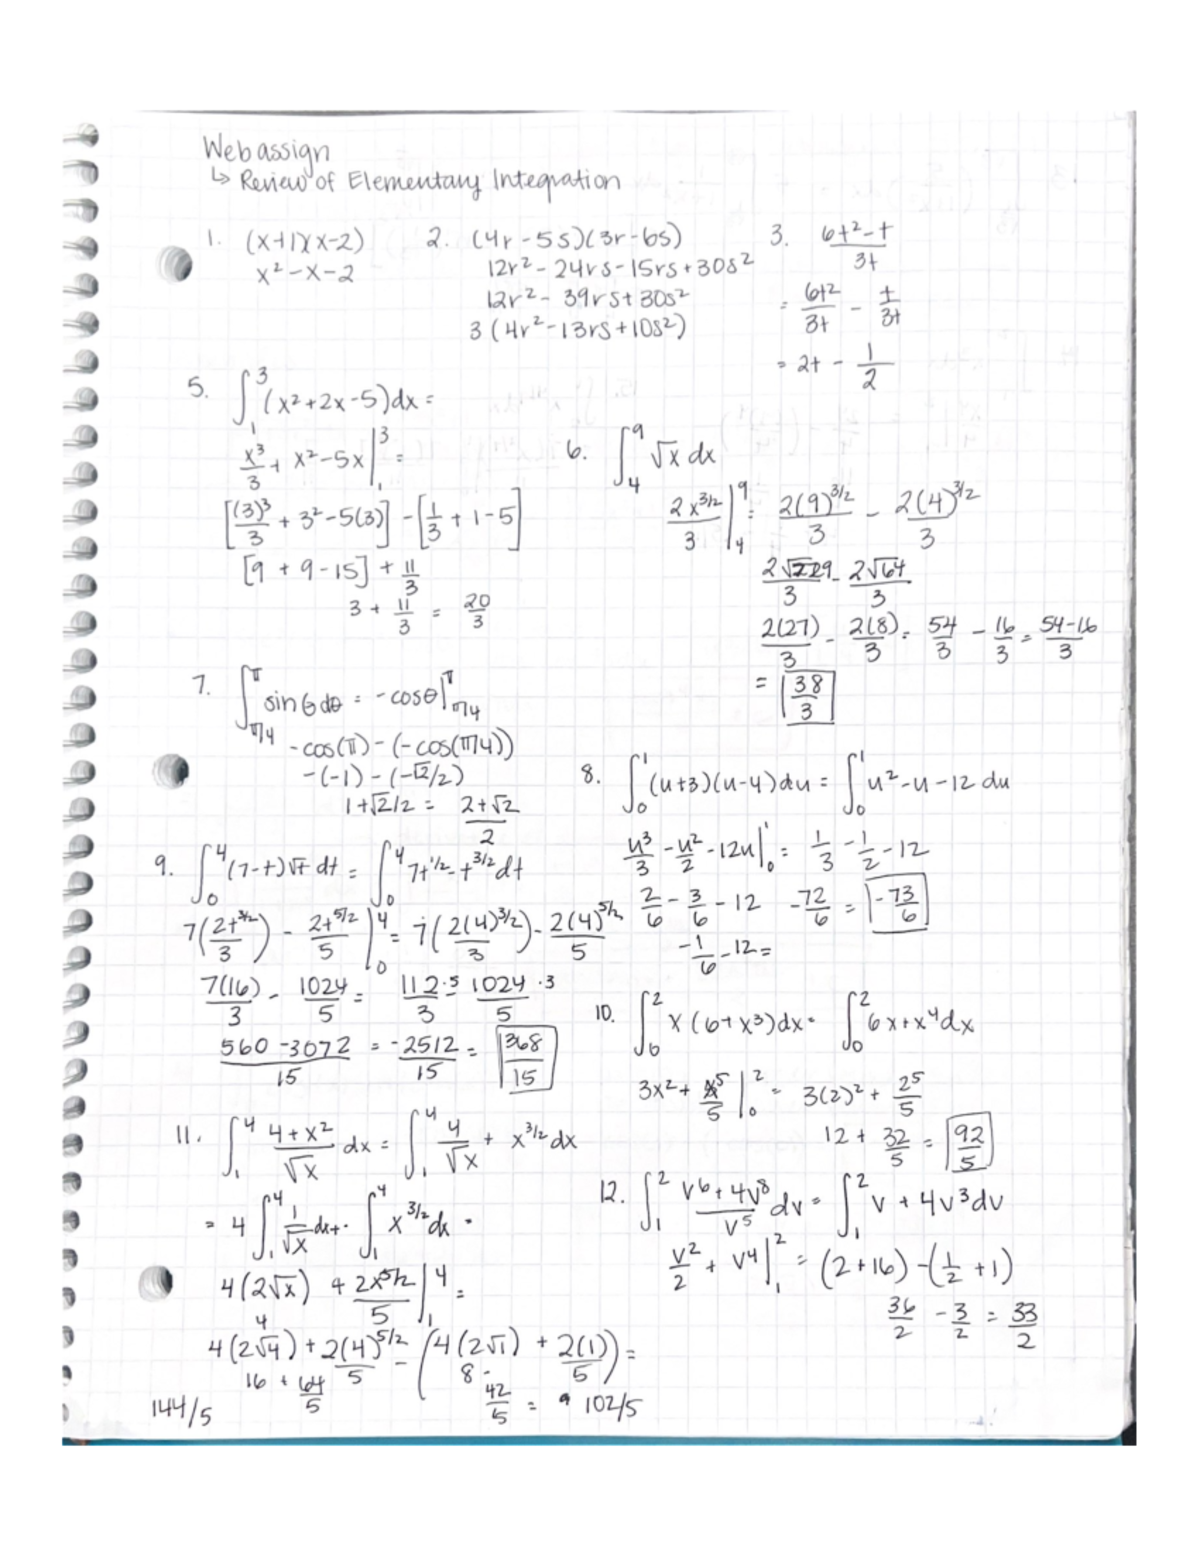 Webassign
↳ Review of Elementary Integration
1. (x+1)(x-2)
x² - x - 2
2. (4r - 5s)(3r - 6s)
12r² - 24rs - 15rs + 30s²
12r² - 39rs + 30s²
3 (4r² - 13rs + 10s²)
3. (6t² - t)/(3t)
= 6t²/3t - t/3t
= 2t - 1/2
5. ∫₁³ (x² + 2x - 5) dx =
x³/3 + x² - 5x |₁³ =
[(3)³/3 + 3² - 5(3)] - [1/3 + 1 - 5]
[9 + 9 - 15] + 11/3
3 + 11/3 = 20/3
6. ∫₄⁹ √x dx
2x^(3/2)/3 |₄⁹ = 2(9)^(3/2)/3 - 2(4)^(3/2)/3
2√729/3 - 2√64/3
2(27)/3 - 2(8)/3 = 54/3 - 16/3 = (54-16)/3
= 38/3
7. ∫_(π/4)^π sinθ dθ = -cosθ |_(π/4)^π
-cos(π) - (-cos(π/4))
-(-1) - (-√2/2)
1 + √2/2 = (2+√2)/2
8. ∫₀¹ (u+3)(u-4) du = ∫₀¹ u² - u - 12 du
u³/3 - u²/2 - 12u |₀¹ = 1/3 - 1/2 - 12
2/6 - 3/6 - 12 -72/6 = -73/6
-1/6 - 12 =
9. ∫₀⁴ (7-t)√t dt = ∫₀⁴ 7t^(1/2) - t^(3/2) dt
7(2t^(3/2)/3) - 2t^(5/2)/5 |₀⁴ = 7(2(4)^(3/2)/3) - 2(4)^(5/2)/5
7(16)/3 - 1024/5 = 112·5/3 - 1024/5 ·3
(560 - 3072)/15 = -2512/15 = 368/15
10. ∫₀² x(6+x³) dx = ∫₀² 6x + x⁴ dx
3x² + x⁵/5 |₀² = 3(2)² + 2⁵/5
12 + 32/5 = 92/5
11. ∫₁⁴ (4+x²)/√x dx = ∫₁⁴ 4/√x + x^(3/2) dx
= 4 ∫₁⁴ 1/√x dx + ∫₁⁴ x^(3/2) dx =
4(2√x) + 2x^(5/2)/5 |₁⁴ =
4
4(2√4) + 2(4)^(5/2)/5 - (4(2√1) + 2(1)/5) =
16 + 64/5 8
144/5 42/5 = 102/5
12. ∫₁² (v⁶ + 4v⁸)/v⁵ dv = ∫₁² v + 4v³ dv
v²/2 + v⁴ |₁² = (2+16) - (1/2 + 1)
36/2 - 3/2 = 33/2